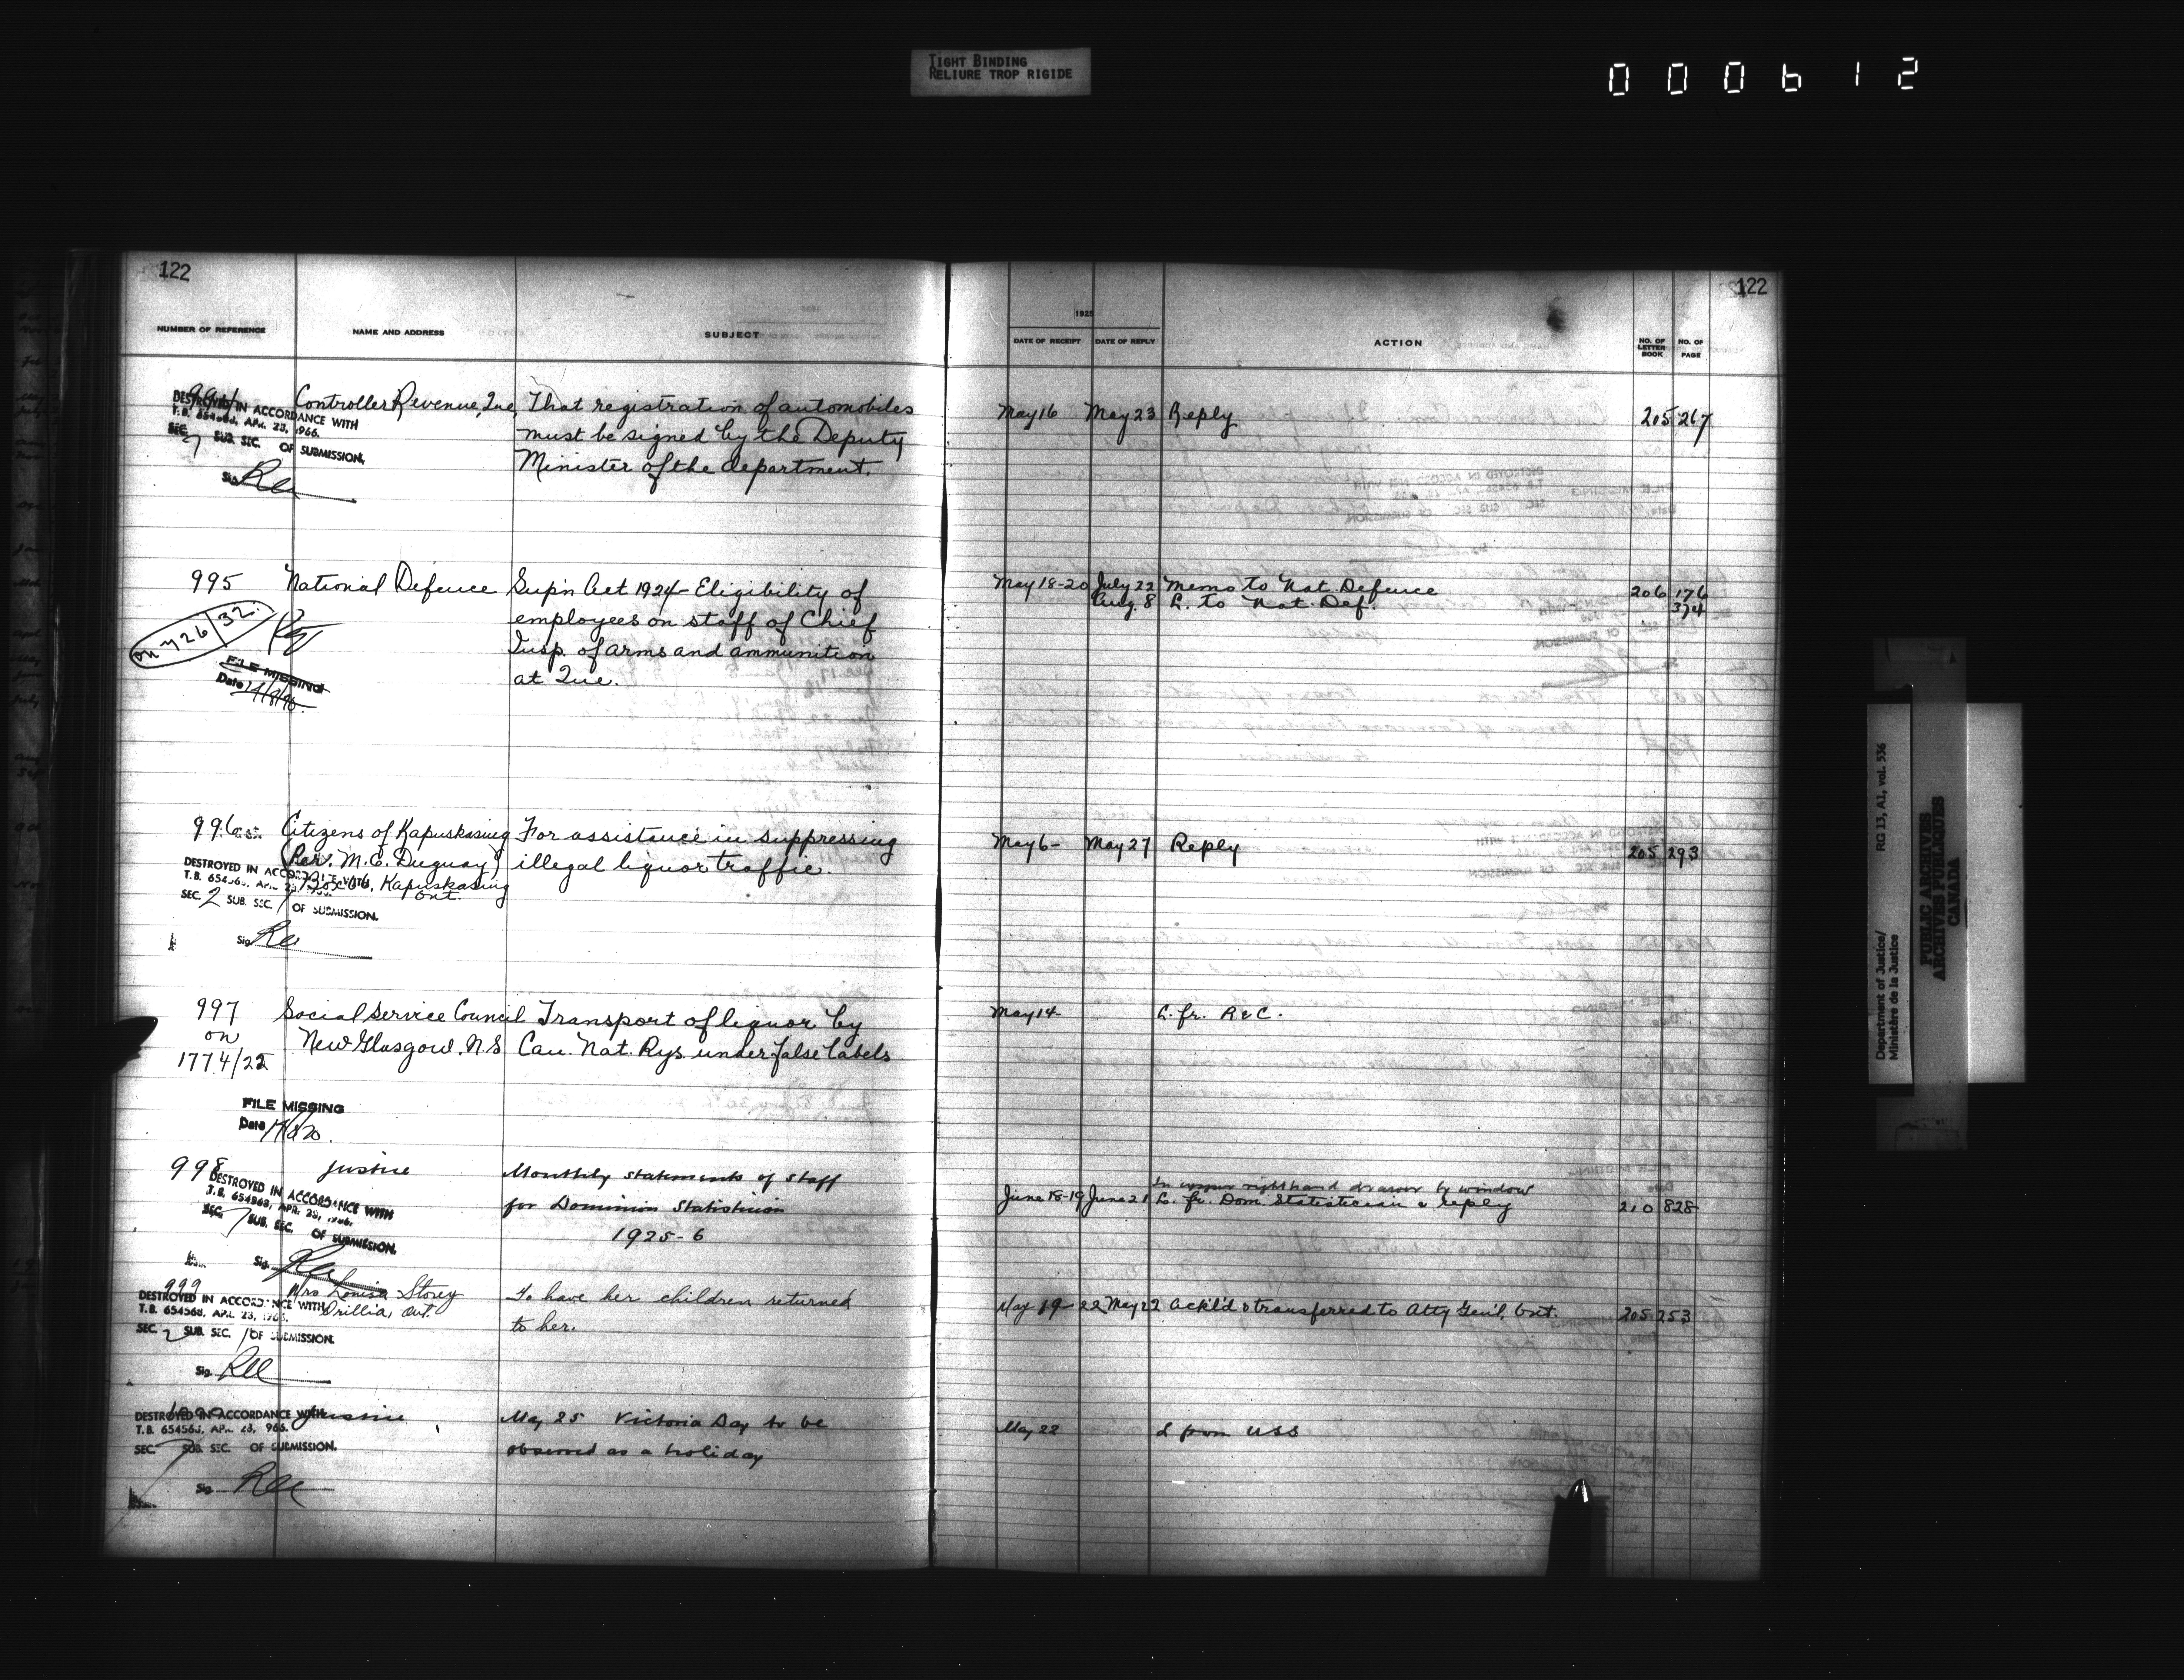 TIGHT BINDING
RELIURE TROP RIGIDE
000612
122
NUMBER OF REFERENCE NAME AND ADDRESS SUBJECT
994 Controller Revenue, Que. That registration of automobiles
must be signed by the Deputy
Minister of the department.
DESTROYED IN ACCORDANCE WITH
T.B. 654568, APR. 23, 1966.
SEC. 7 SUB. SEC. OF SUBMISSION.
Sig.
995 National Defence Sup'n Act 1924 - Eligibility of
employees on staff of Chief
Insp. of arms and ammunition
at Que.
on 726/32
FILE MISSING
Date
996 Citizens of Kapuskasing For assistance in suppressing
(Rev. M.C. Duguay) illegal liquor traffic.
Kapuskasing
Ont.
DESTROYED IN ACCORDANCE WITH
T.B. 654568, APR. 23, 1966.
SEC. 2 SUB. SEC. 1 OF SUBMISSION.
Sig.
997 Social Service Council Transport of liquor by
on New Glasgow, N.S. Can. Nat. Rys. under false labels
1774/22
FILE MISSING
Date
998 Justice Monthly statements of staff
for Dominion Statistician
1925-6
DESTROYED IN ACCORDANCE WITH
T.B. 654568, APR. 23, 1966.
SEC. 7 SUB. SEC. OF SUBMISSION.
Sig.
999 Mrs Louisa Storey To have her children returned
Orillia, Ont. to her.
DESTROYED IN ACCORDANCE WITH
T.B. 654568, APR. 23, 1966.
SEC. 2 SUB. SEC. 1 OF SUBMISSION.
Sig.
1000 Justice May 25 Victoria Day to be
observed as a holiday
DESTROYED IN ACCORDANCE WITH
T.B. 654568, APR. 23, 1966.
SEC. 7 SUB. SEC. OF SUBMISSION.
Sig.
122
1925
DATE OF RECEIPT DATE OF REPLY ACTION NO. OF LETTER BOOK NO. OF PAGE
May 16 May 23 Reply 205 267
May 18-20 July 22 Memo to Nat. Defence 206 176
Aug. 8 L. to Nat. Def. 374
May 6- May 27 Reply 205 293
May 14 L. fr. R&C.
In upper righthand drawer by window
June 18-19 June 21 L. fr. Dom. Statistician & reply 210 828
May 19-22 May 22 Ack'd & transferred to Atty Gen'l, Ont. 205 253
May 22 L from USS
Department of Justice/
Ministère de la Justice
RG 13, A1, vol. 536
PUBLIC ARCHIVES
ARCHIVES PUBLIQUES
CANADA